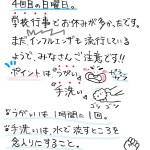 4回目の日曜日。
学校行事とお休みが多かったです。
まだインフルエンザも流行している
ようで、みなさんご注意です!!
ポイントは°うがい°と
°手洗い°
ゴシ ゴシ
°うがいは1時間に1回。
°手洗いは、水で流すところを
念入りにすること。